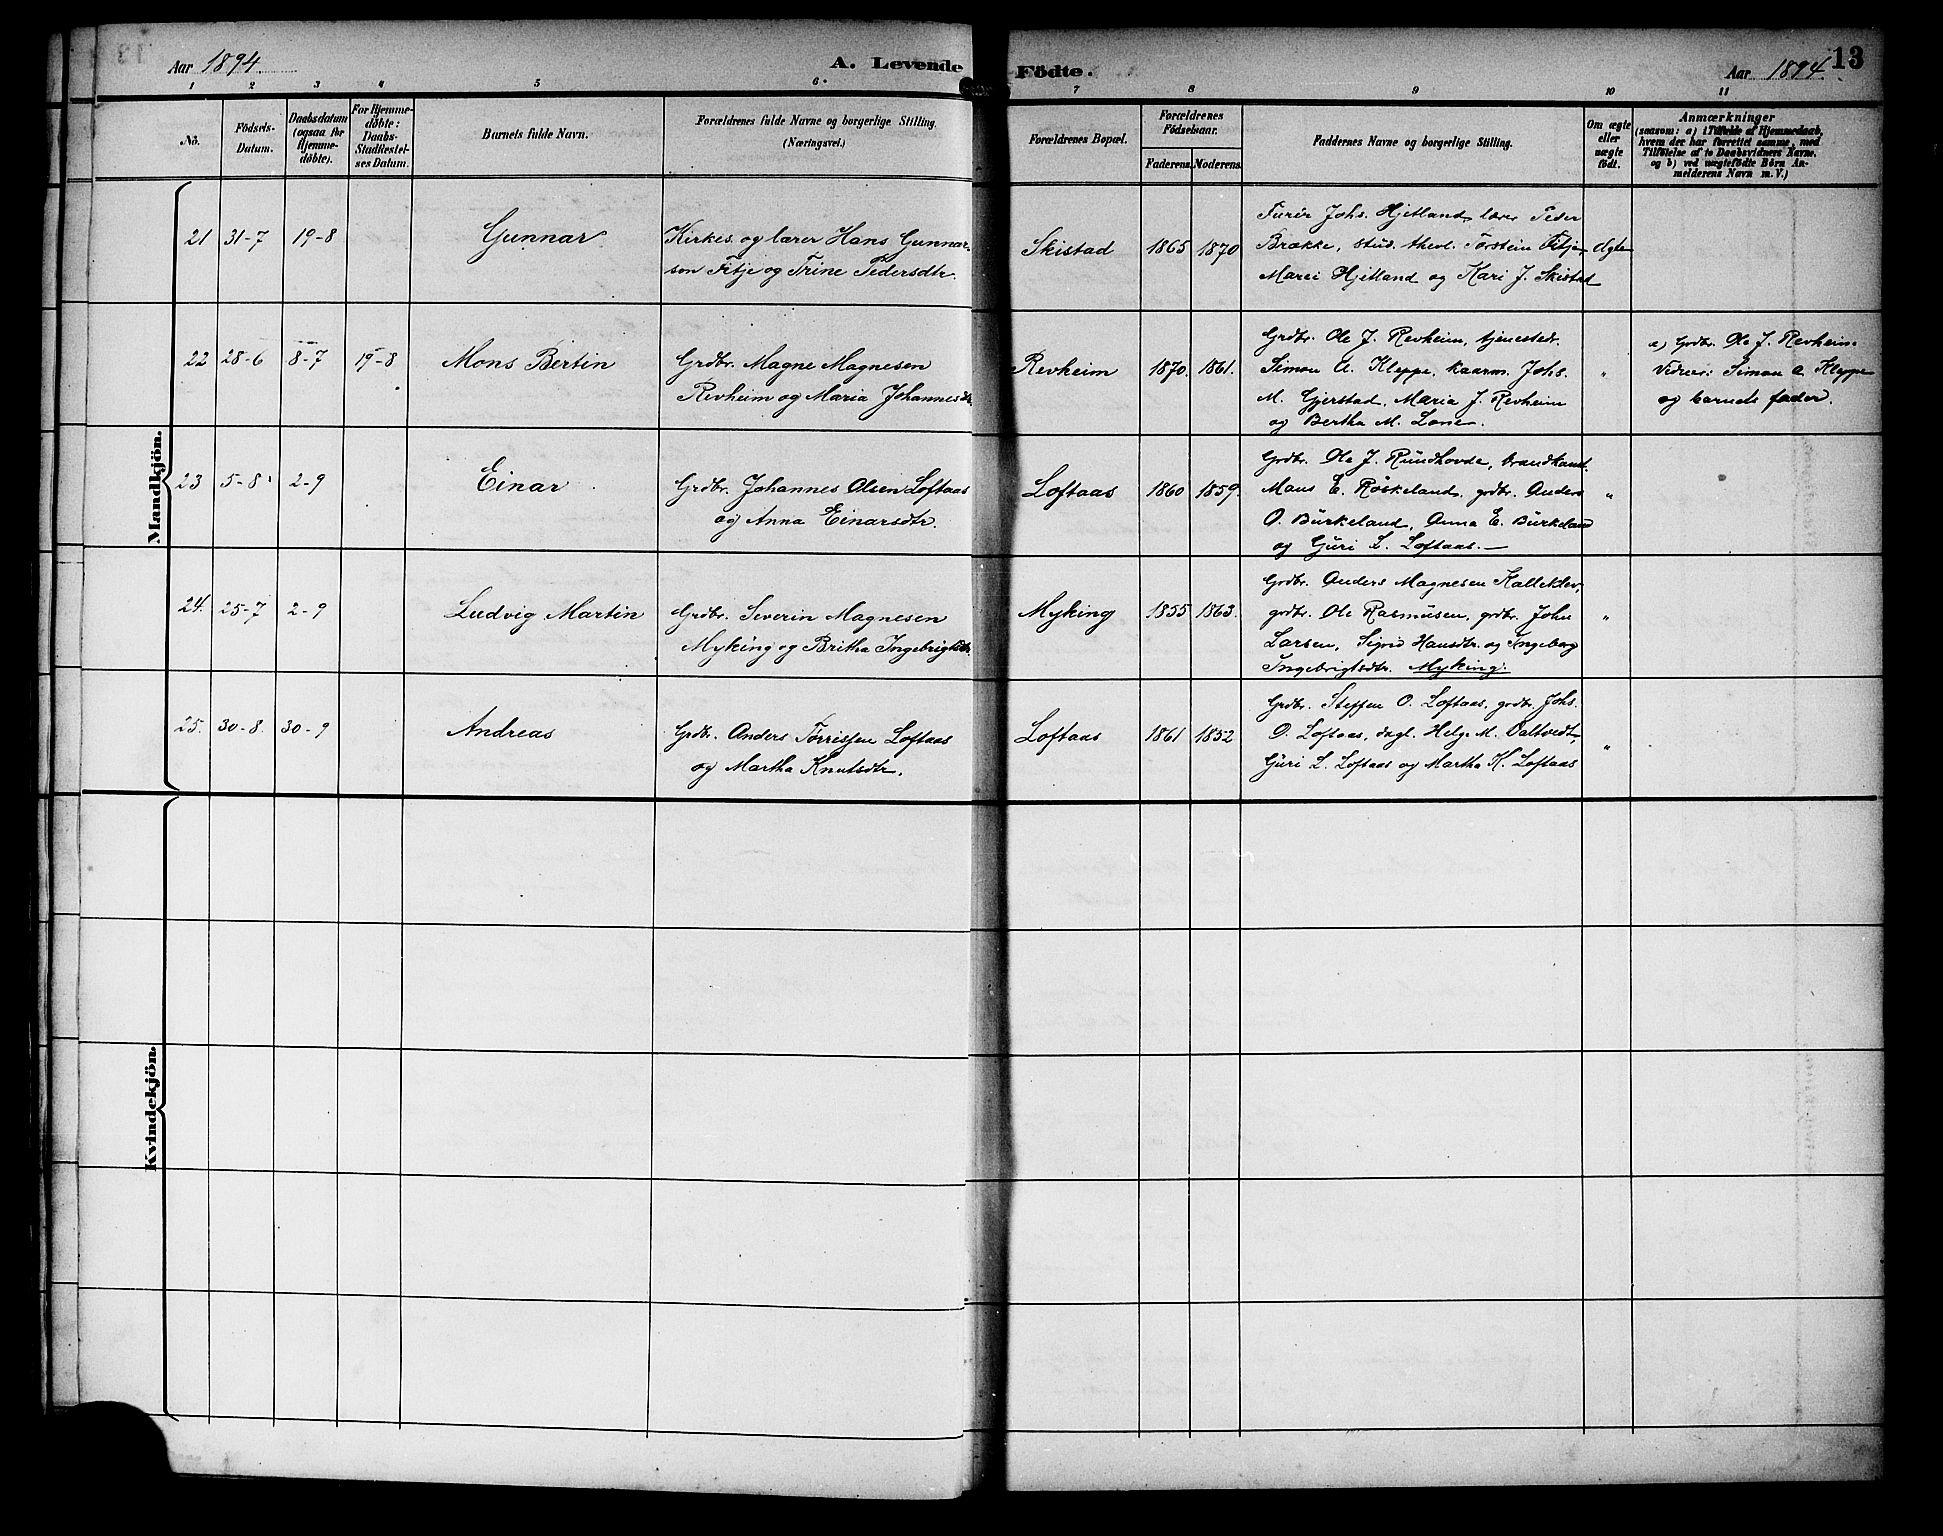 Aar 1894. A. Levende Födte. Aar 1894. 13
1 2 3 4 5 6 7 8 9 10 11
No. Födsels-Datum. Daabsdatum (ogsaa for Hjemme-döbte). For Hjemme-döbte: Daabs-Stadfæstel-ses Datum. Barnets fulde Navn. Forældrenes fulde Navne og borgerlige Stilling. (Næringsvei.) Forældrenes Bopæl. Forældrenes Fødselsaar. Faderens. Moderens. Faddernes Navne og borgerlige Stilling. Om ægte eller uægte födt. Anmærkninger (saasom: a) i Tilfælde af Hjemmedaab, hvem der har forrettet samme, med Tilföielse af to Daabsvidners Navne, og b) ved uægtefödte Börn An-melderens Navn m. V.)
Mandkjön.
21 31-7 19-8 Gunnar Kirkes. og lærer Hans Gunnar-
son Fitje og Trine Pedersdtr.
Skistad 1865 1870
Furér Johs. Hjetland, lærer Peder
Brække, stud. theol. Torstein Fitje,
Marei Hjetland og Kari J. Skistad
ægte
22 28-6 8-7 19-8 Mons Bertin Grdbr. Magne Magnesen
Revheim og Maria Johannesdtr.
Revheim 1870. 1861.
Grdbr. Ole J. Revheim, tjenestedr.
Simon A. Kleppe, kaarm. Johs.
M. Gjerstad, Maria J. Revheim
og Bertha M. Lone.
"
a) Grdbr. Ole J. Revheim.
Vidner: Simon A. Kleppe
og barnets fader.
23 5-8 2-9 Einar. Grdbr. Johannes Olsen Loftaas
og Anna Einarsdtr.
Loftaas 1860 1859.
Grdbr. Ole J. Rundhovde,
Mans E. Røskeland, grdbr. Anders
O. Burkeland, Anna E. Burkeland
og Guri L. Loftaas.
"
24. 25-7 2-9 Ludvig Martin Grdbr. Severin Magnesen
Myking og Britha Ingebrigtsdtr.
Myking 1855 1863.
Grdbr. Anders Magnesen Kalleklev,
grdbr. Ole Rasmusen, grdbr. John
Larsen, Sigrid Hansdtr. og Ingeborg
Ingebrigtsdtr. Myking.
"
25. 30-8. 30-9 Andreas Grdbr. Anders Tørrissen Loftaas
og Martha Knutsdtr.
Loftaas 1861 1852
Grdbr. Steffen O. Loftaas, grdbr. Johs.
O. Loftaas, dagl. Helge M. Daltvedt,
Guri L. Loftaas og Martha K. Loftaas
"
Kvindekjön.